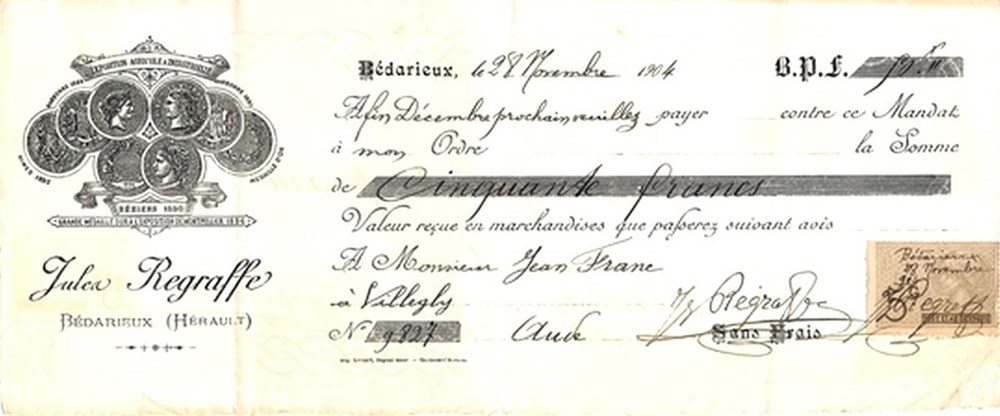 EXPOSITION AGRICOLE & INDUSTRIELLE
BÉZIERS 1890
GRANDE MÉDAILLE D'OR À L'EXPOSITION DE MONTPELLIER 1896
MÉDAILLE D'OR
Jules Regraffe
BÉDARIEUX (HÉRAULT)
Bédarieux, le 28 Novembre 1904 B.P.F.
Afin Décembre prochain veuillez payer contre ce Mandat
à mon Ordre la Somme
de Cinquante francs
Valeur reçue en marchandises que passerez suivant avis
A Monsieur Jean Franc
à Villegly
No 9827 Aude
Js Régraffe
Sans Frais
Bédarieux
28 Novembre